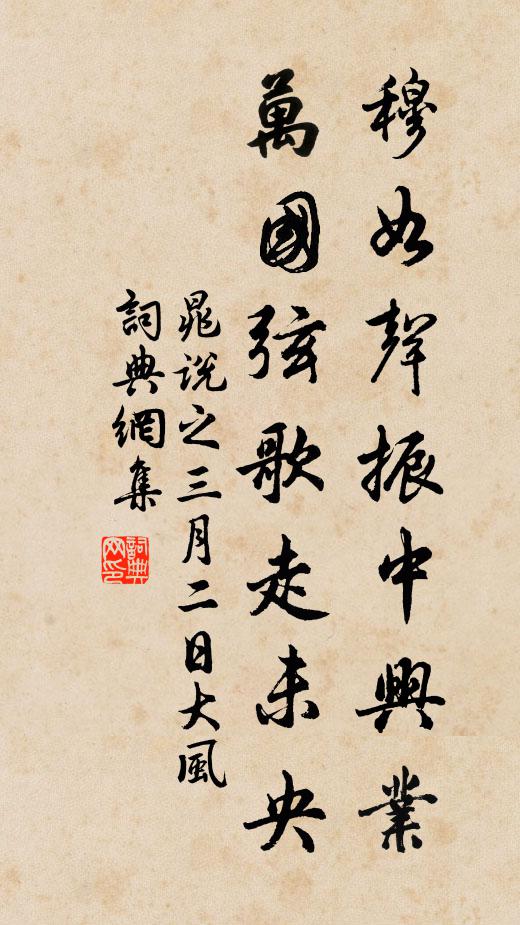 穆如聲振中興業
萬國弦歌走未央
晁說之三月二日大風
詞典網集
詞典網印